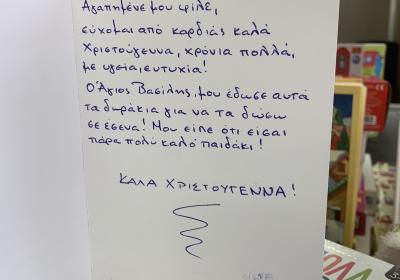 Αγαπημένε μου φίλε,
εύχομαι από καρδιάς καλά
Χριστούγεννα, χρόνια πολλά,
με υγεία, ευτυχία!
Ο Άγιος Βασίλης, μου έδωσε αυτά
τα δωράκια για να τα δώσω
σε εσένα! Μου είπε ότι είσαι
πάρα πολύ καλό παιδάκι!
ΚΑΛΑ ΧΡΙΣΤΟΥΓΕΝΝΑ!